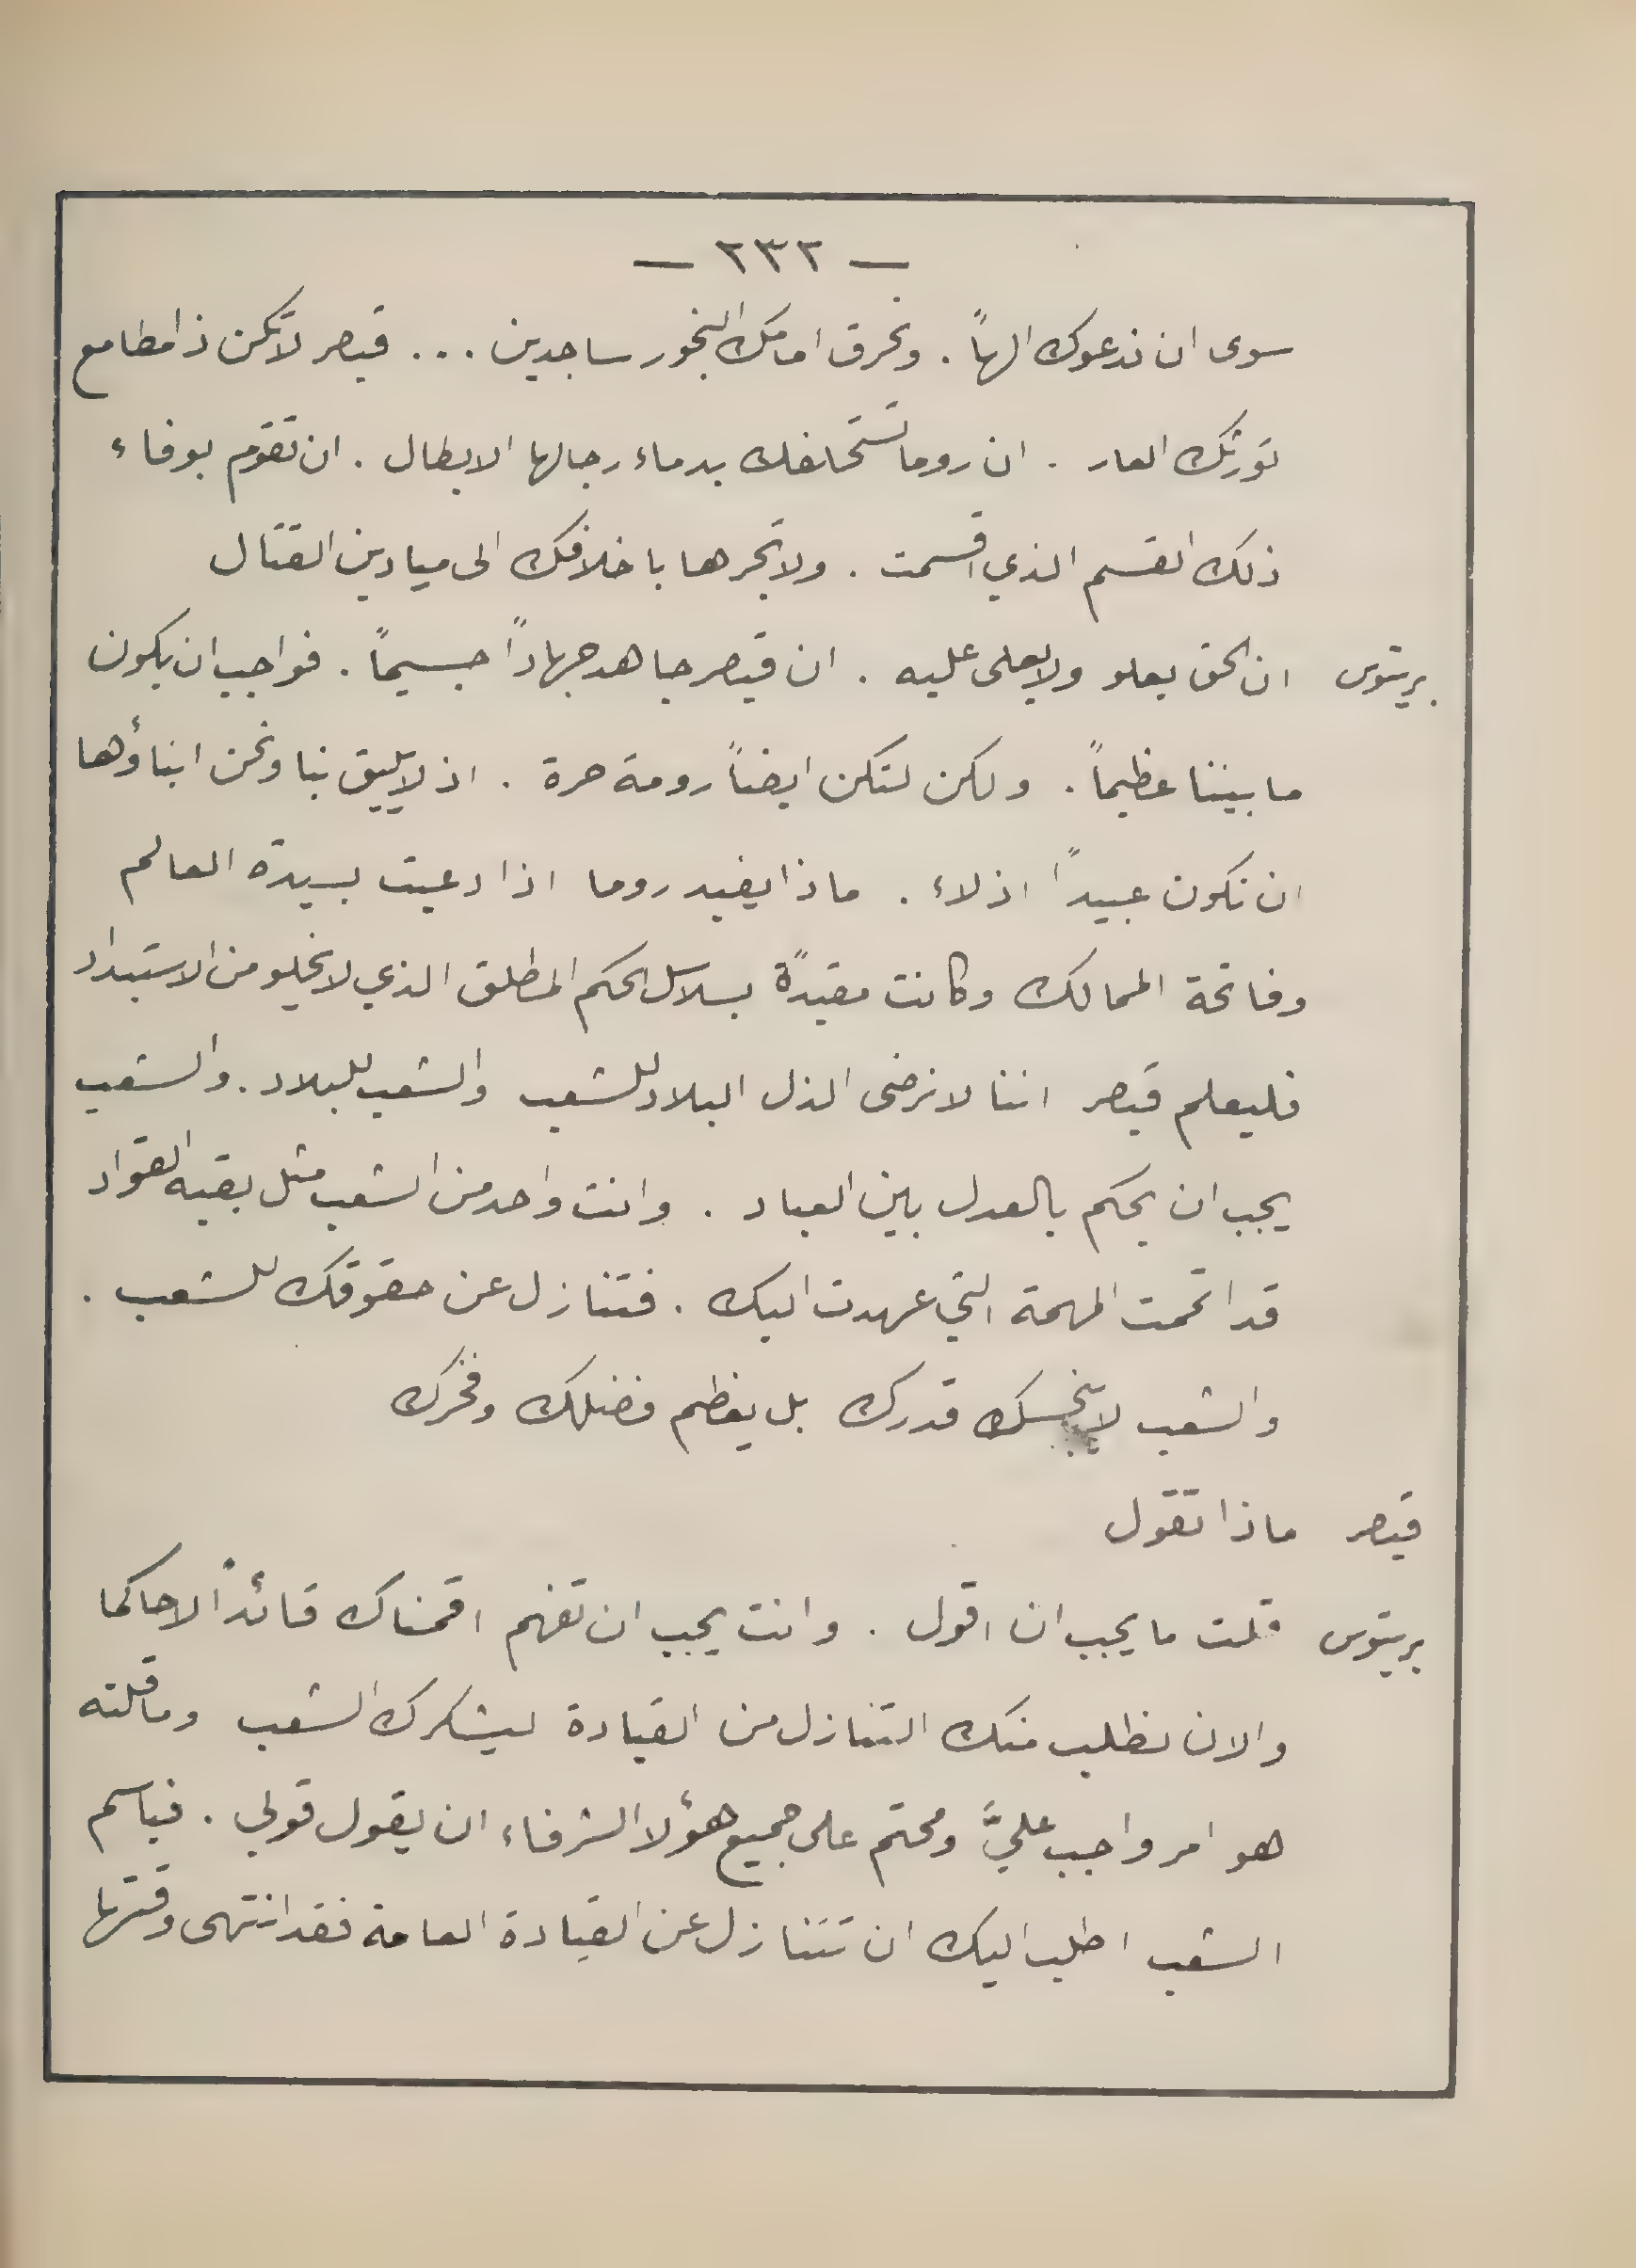 — ٢٣٢ —
سوى ان ندعوك الهاً . ونحرق امامك البخور ساجدين ... قيصر لا تكن ذا مطامع
تورثك العار . ان روما تستحلفك بدماء رجالها الابطال . ان تقوم بوفاء
ذلك القسم الذي اقسمت . ولا تجرها باخلافك الى ميادين القتال
بريتوس ان الحق يعلو ولا يعلى عليه . ان قيصر جاهد جهاداً جسيماً . فواجب ان يكون
ما بيننا عظيماً . ولكن لتكن ايضاً رومة حرة . اذ لا يليق بنا ونحن ابناؤها
ان نكون عبيداً اذلاء . ماذا يفيد روما اذا دعيت بسيدة العالم
وفاتحة الممالك وكانت مقيدةً بسلاسل الحكم المطلق الذي لا يخلو من الاستبداد
فليعلم قيصر اننا لا نرضى الذل البلاد للشعب والشعب للبلاد . والشعب
يجب ان يحكم بالعدل بين العباد . وانت واحد من الشعب مثل بقيه القواد
قد اتممت المهمة التي عهدت اليك . فتنازل عن حقوقك للشعب .
والشعب لا يبخسك قدرك بل يعظم فضلك وفخرك
قيصر ماذا تقول
بريتوس قلت ما يجب ان اقول . وانت يجب ان تفهم اقمناك قائداً لا حاكما
والان نطلب منك التنازل من القيادة ليشكرك الشعب وما قلته
هو امر واجب عليَّ ومحتم على جميع هؤلا الشرفاء ان يقول قولي . فباسم
الشعب اطلب اليك ان تتنازل عن القيادة العامة فقد انتهى وقتها